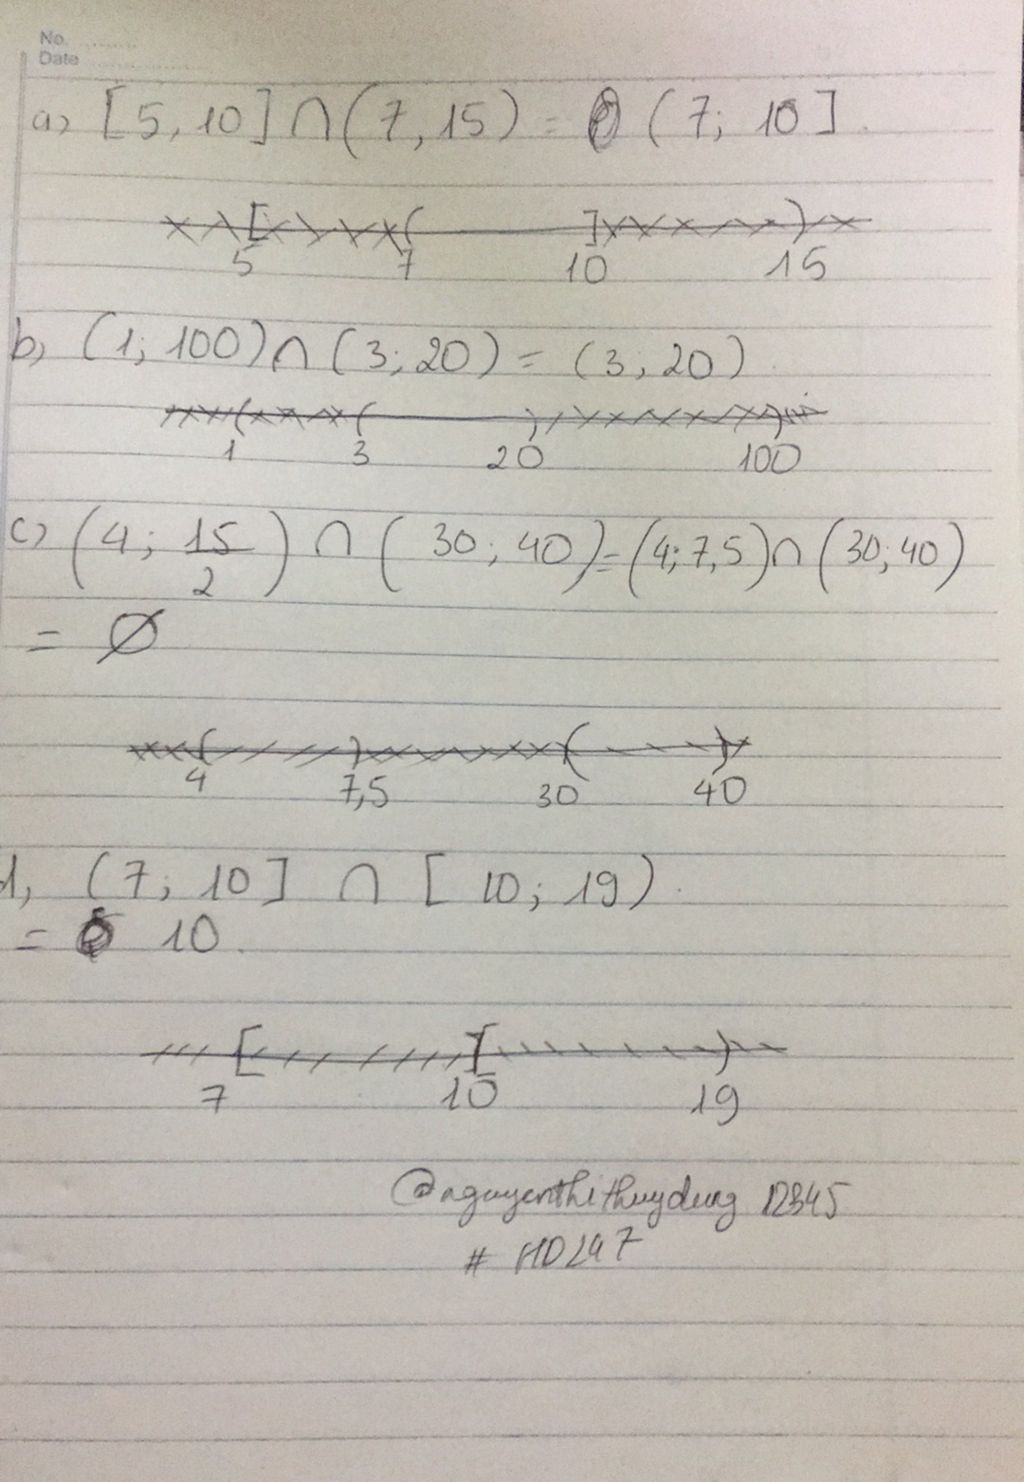 No.
Date
a) [5, 10] ∩ (7, 15) = (7; 10].
5 7 10 15
b) (1; 100) ∩ (3; 20) = (3; 20).
1 3 20 100
c) (4; 15/2) ∩ (30; 40) = (4; 7,5) ∩ (30; 40)
= ∅
4 7,5 30 40
d, (7; 10] ∩ [10; 19).
= 10.
7 10 19
@nguyenthithuydung12345
# HD247